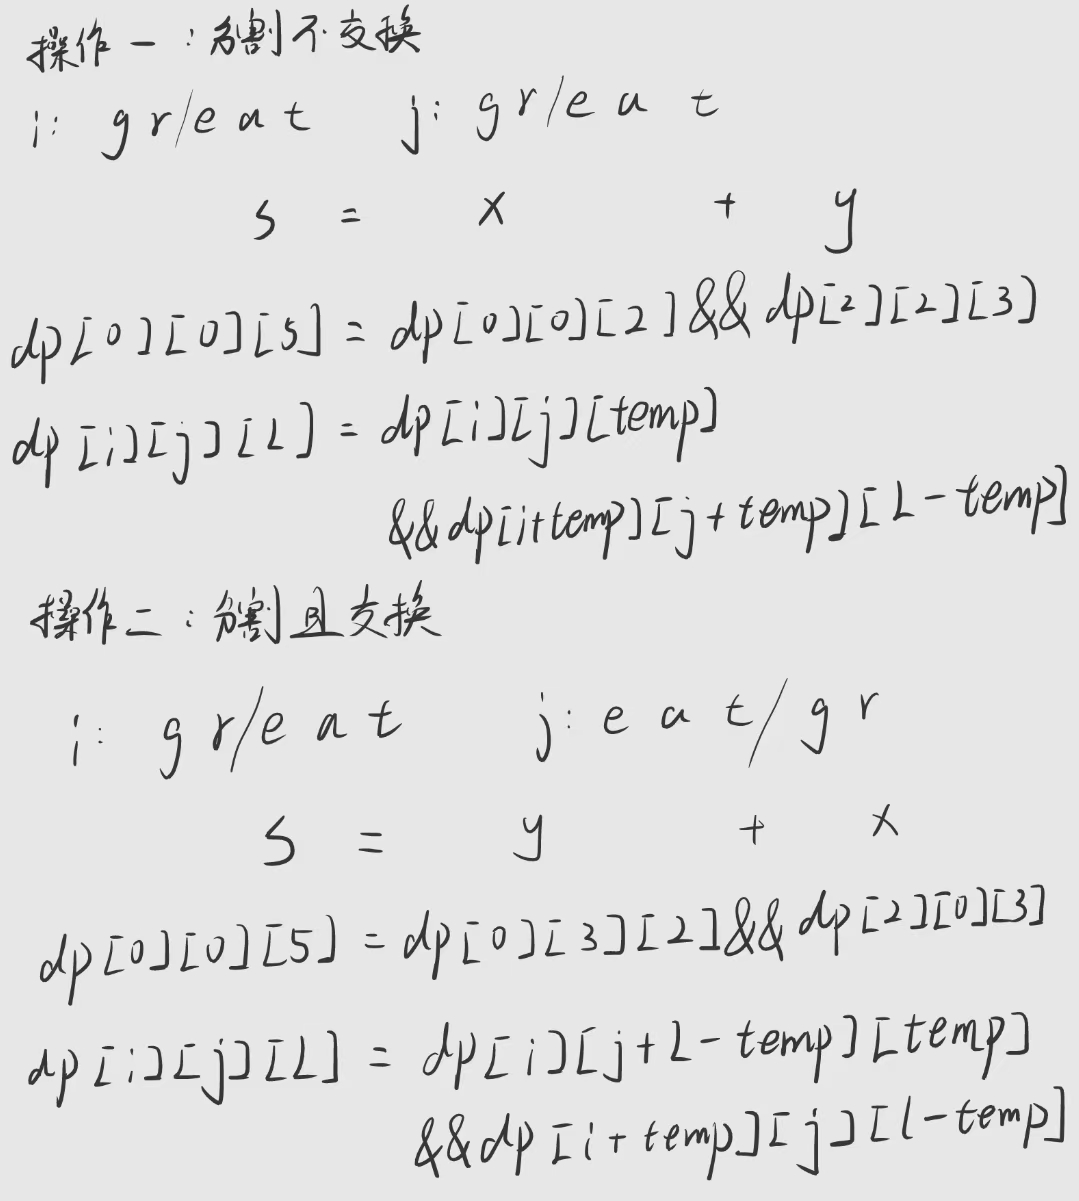 操作一：分割不交换
i: gr/eat j: gr/eat
s = x + y
dp[0][0][5] = dp[0][0][2] && dp[2][2][3]
dp[i][j][L] = dp[i][j][temp]
&& dp[i+temp][j+temp][L-temp]
操作二：分割且交换
i: gr/eat j: eat/gr
s = y + x
dp[0][0][5] = dp[0][3][2] && dp[2][0][3]
dp[i][j][L] = dp[i][j+L-temp][temp]
&& dp[i+temp][j][l-temp]